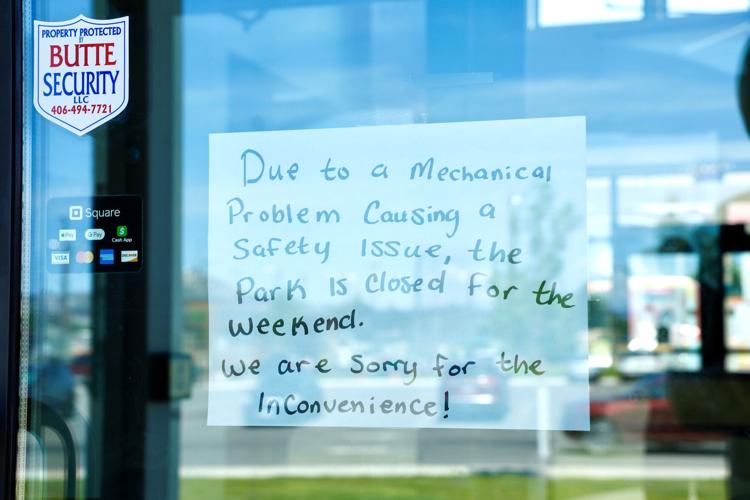 PROPERTY PROTECTED
BY
BUTTE
SECURITY
LLC
406-494-7721
Square
Pay
G Pay
Cash App
VISA
DISCOVER
Due to a Mechanical
Problem Causing a
Safety Issue, the
Park Is Closed for the
Weekend.
We are Sorry for the
InConvenience!